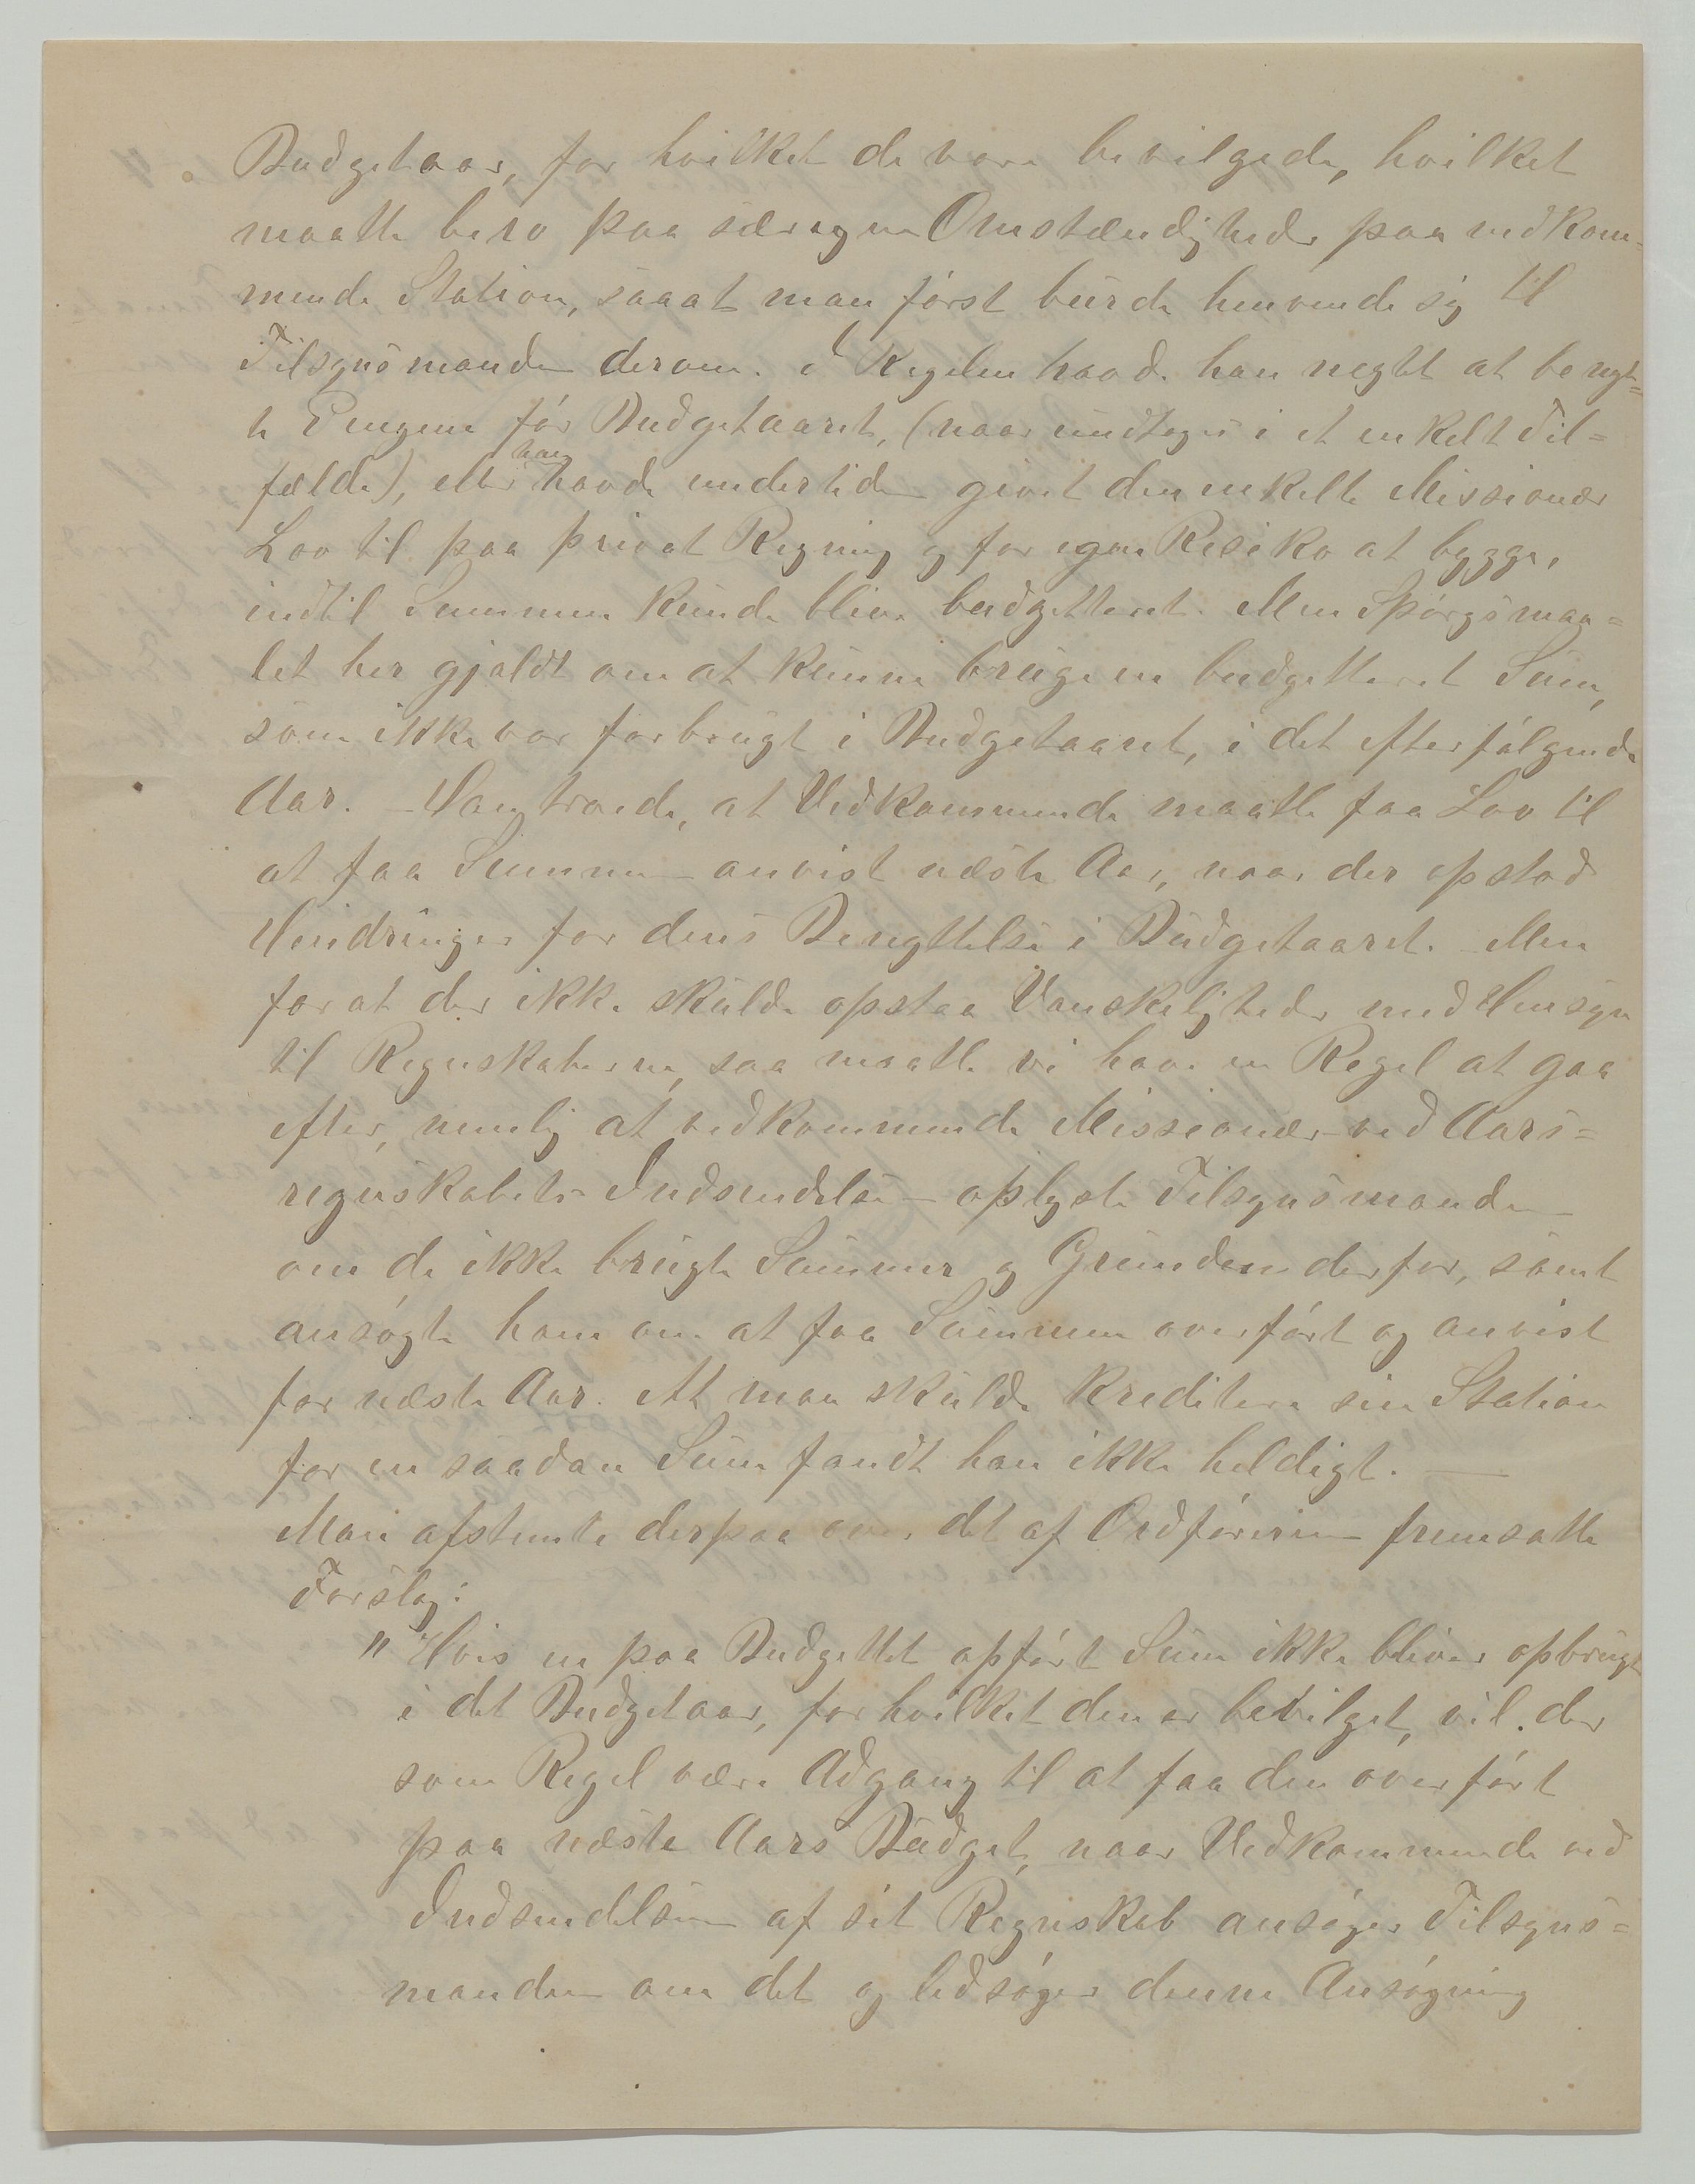 Budgetaar, for hvilket de vare bevilgede, hvilket
maatte bero paa særegne Omstændigheder paa vedkom-
mende Station, saaat man først burde henvende sig til
Tilsynsmanden derom. I Regelen havde han negtet at benyt-
te Pengene før Budgetaaret, (naar undtages i et enkelt Til-
fælde), eller han havde undertiden givet den enkelte Missionær
Lov til paa privat Regning og for egen Risiko at bygge,
indtil Summen kunde blive budgetteret. Men Spørgsmaa-
let her gjaldt om at kunne bruge en budgetteret Sum,
som ikke var forbrugt i Budgetaaret, i det efterfølgende
Aar. – Han troede, at Vedkommende maatte faa Lov til
at faa Summen anvist næste Aar, naar der opstod
Hindringer for dens Benyttelse i Budgetaaret. Men
for at der ikke skulde opstaa Vanskeligheder med Hensyn
til Regnskaberne, saa maatte vi have en Regel at gaa
efter, nemlig at vedkommende Missionær ved Aars-
regnskabets Indsendelse oplyste Tilsynsmanden
om de ikke brugte Summer og Grunden derfor, samt
ansøgte ham om at faa Summen overført og anvist
for næste Aar. At man skulde kreditere sin Station
for en saadan Sum fandt han ikke heldigt. —
Man afstemte derpaa over det af Ordføreren fremsatte
Forslag:
"Hvis en paa Budgettet opført Sum ikke bliver opbrugt
i det Budgetaar, for hvilket den er bevilget, vil der
som Regel være Adgang til at faa den overført
paa næste Aars Budget, naar Vedkommende ved
Indsendelsen af sit Regnskab ansøger Tilsyns-
manden om det og ledsager denne Ansøgning